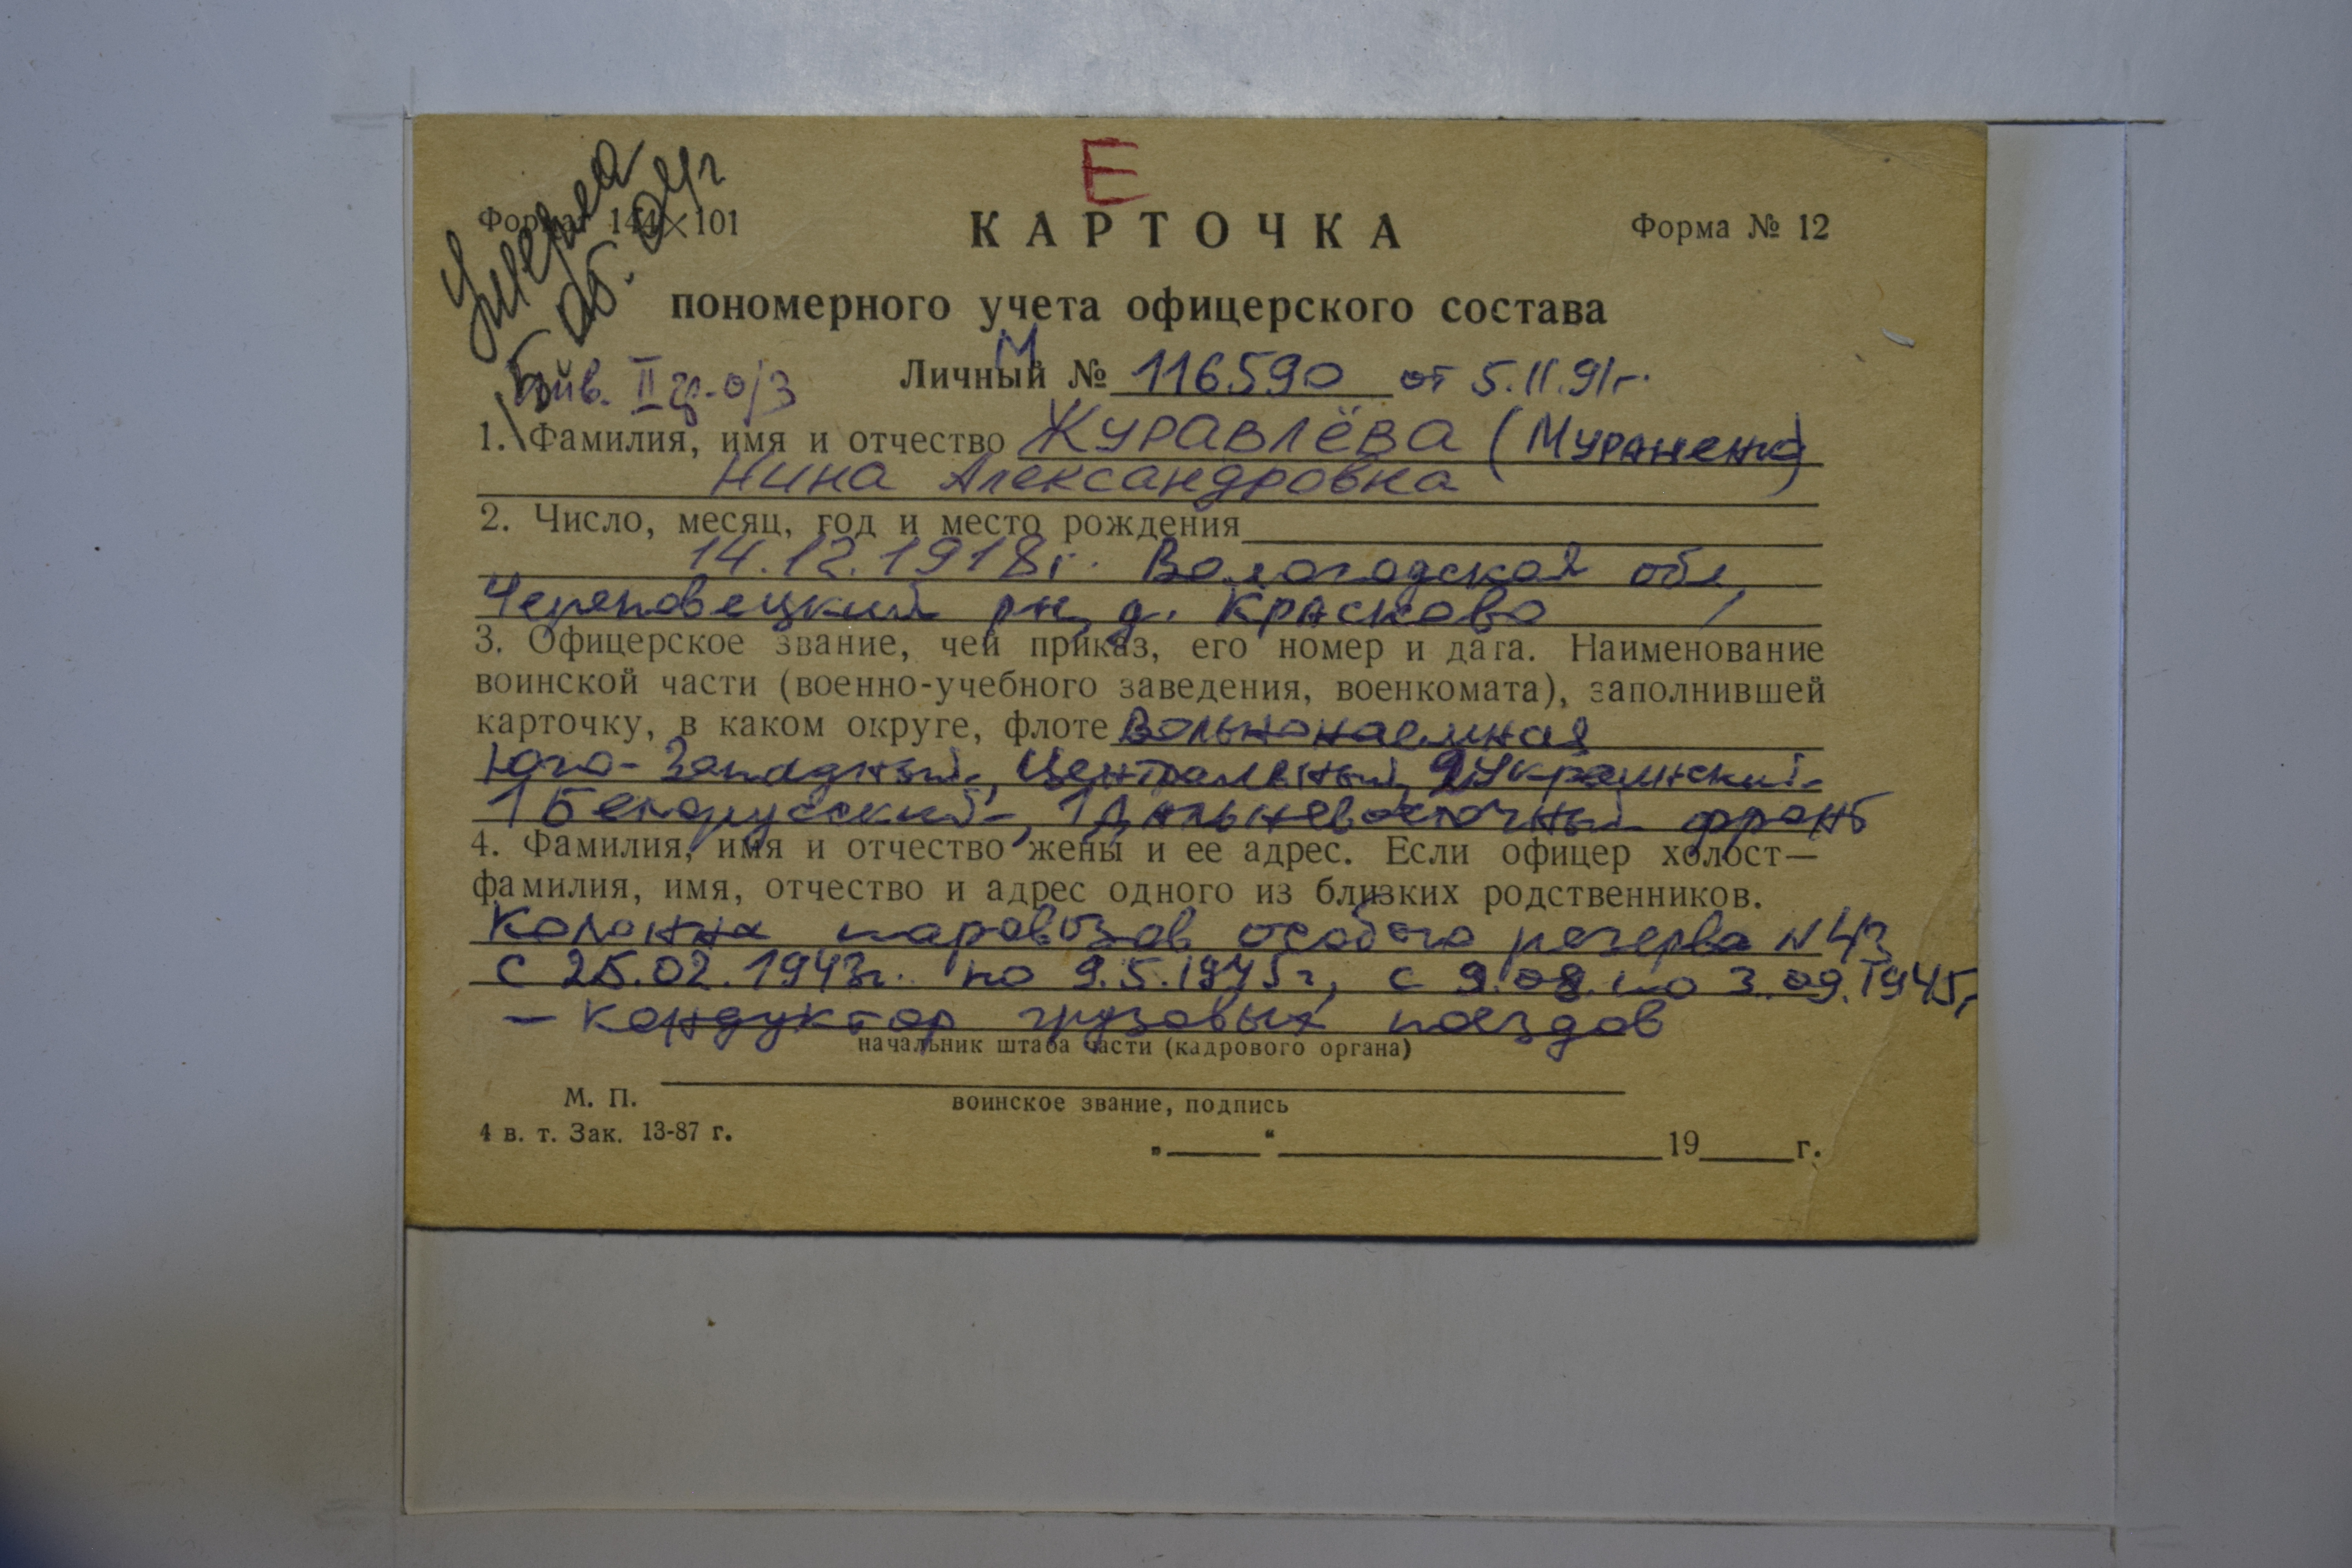 Умерла
05.04г
Е
Формат 144×101
КАРТОЧКА
Форма № 12
пономерного учета офицерского состава
инв. II гр. о/з
М
Личный № 116590 от 5.11.91г.
1. Фамилия, имя и отчество Журавлёва (Мураненко)
Нина Александровна
2. Число, месяц, год и место рождения
14.12.1918г. Вологодская обл,
Череповецкий рн, д. Красково
3. Офицерское звание, чей приказ, его номер и дата. Наименование
воинской части (военно-учебного заведения, военкомата), заполнившей
карточку, в каком округе, флоте Вольнонаемная
Юго-Западный, Центральный, 2 Украинский
1 Белорусский, 1 Дальневосточный фронт
4. Фамилия, имя и отчество жены и ее адрес. Если офицер холост—
фамилия, имя, отчество и адрес одного из близких родственников.
Колонна паровозов особого резерва N 43
с 25.02.1943г. по 9.5.1945г, с 9.08. по 3.09.1945г
– кондуктор грузовых поездов
начальник штаба части (кадрового органа)
М. П.
воинское звание, подпись
4 в. т. Зак. 13-87 г.
„ “ 19 г.